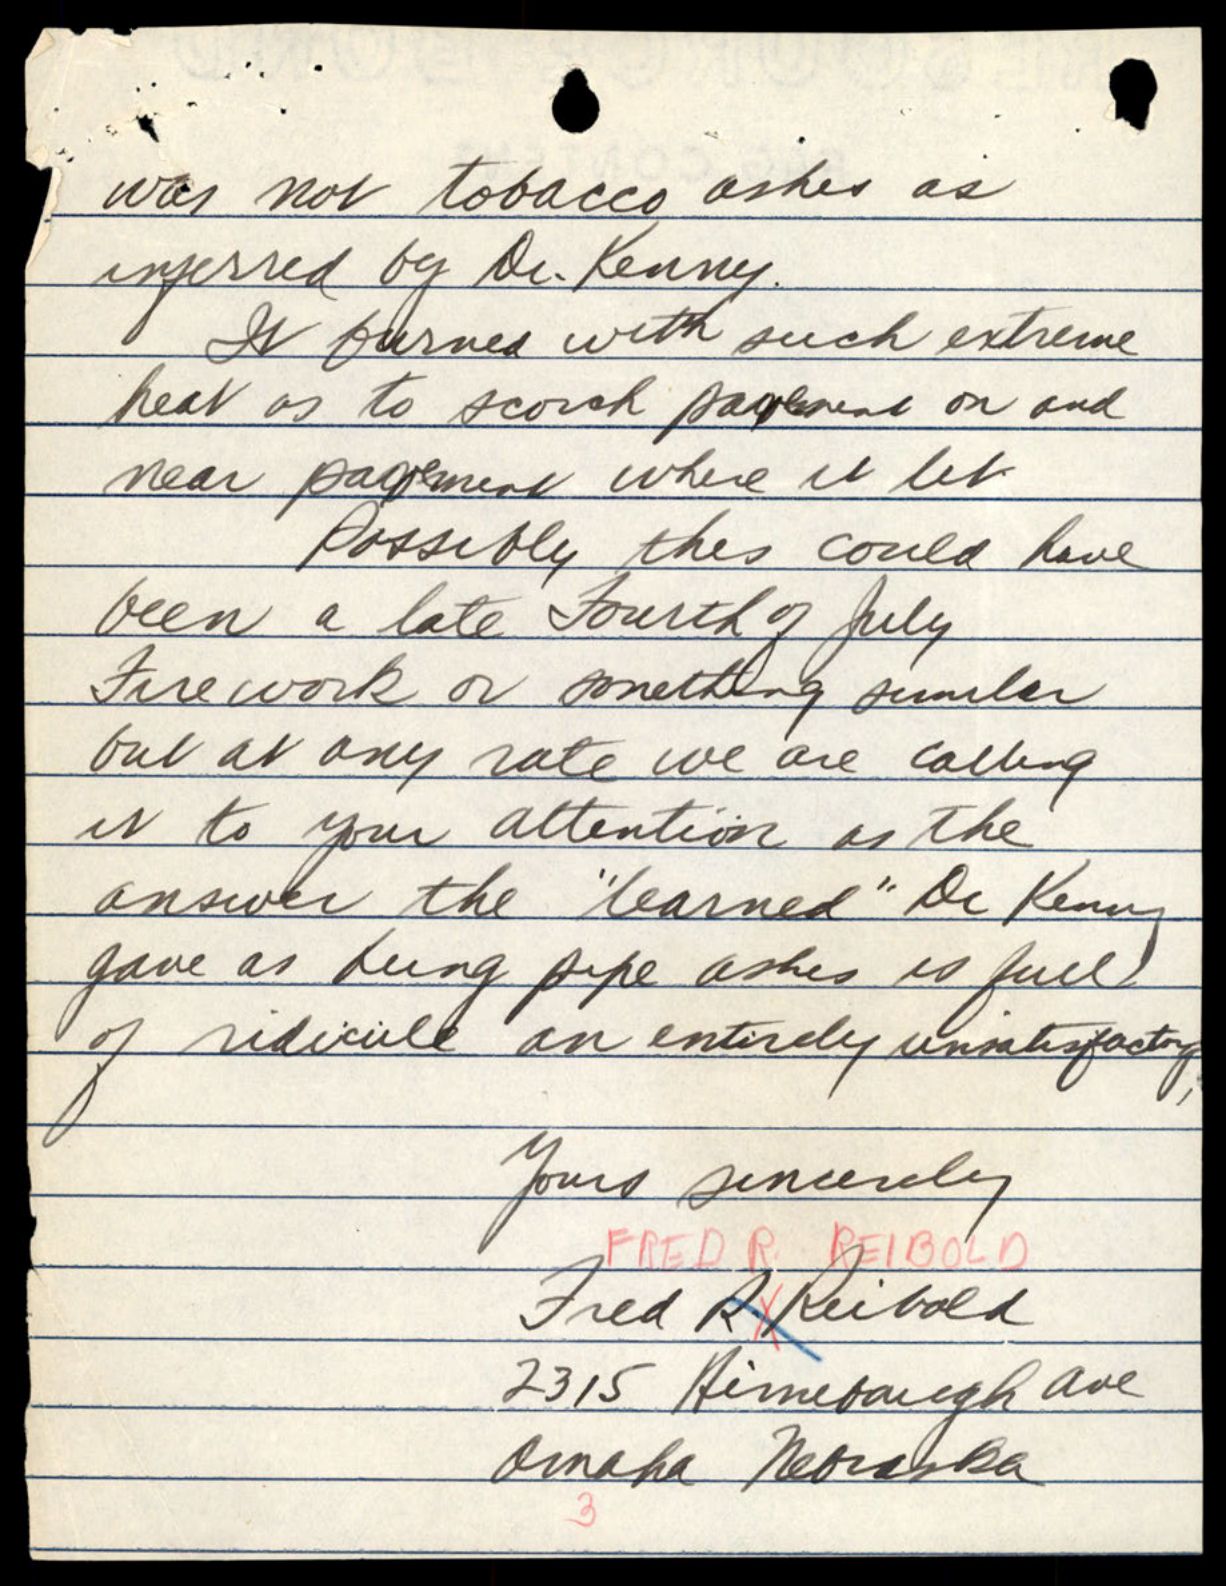 was not tobacco ashes as
inferred by Dr. Kenny.
It burned with such extreme
heat as to scorch pavement on and
near pavement where it lit
Possibly this could have
been a late Fourth of July
Firework or something similar
but at any rate we are calling
it to your attention as the
answer the "learned" Dr Kenny
gave as being pipe ashes is fuel
of ridicule an entirely unsatisfactory,
Yours sincerely
FRED R. REIBOLD
Fred R. Reibold
2315 Himebaugh Ave
Omaha Nebraska
3